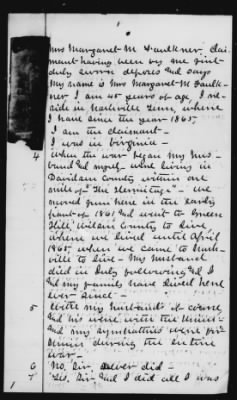 Mrs Margaret M Faulkner, Clai-
mant having been by me first
duly sworn deposes and says
My name is Mrs Margaret M Faulk-
ner I am 45 years of age, I re-
side in Nashville Tenn, where
I have since the year 1865,
I am the claimant -
I was in Virginia -
4 When the war began my hus-
band and myself were living in
Davidson County within one
mile of "The Hermitage" - We
moved from here in the early
part of 1861 and went to Green
Hill, Wilson County to live
where we lived until April
1865, when we came to Nash-
ville to live - My husband
died in July following and I
and my family have lived here
ever since -
5 With my husband of course
and his were with the Union
and my sympathies were for
Union during the entire
war -
6 No, Sir, never did -
7 Yes, Sir and I did all I was